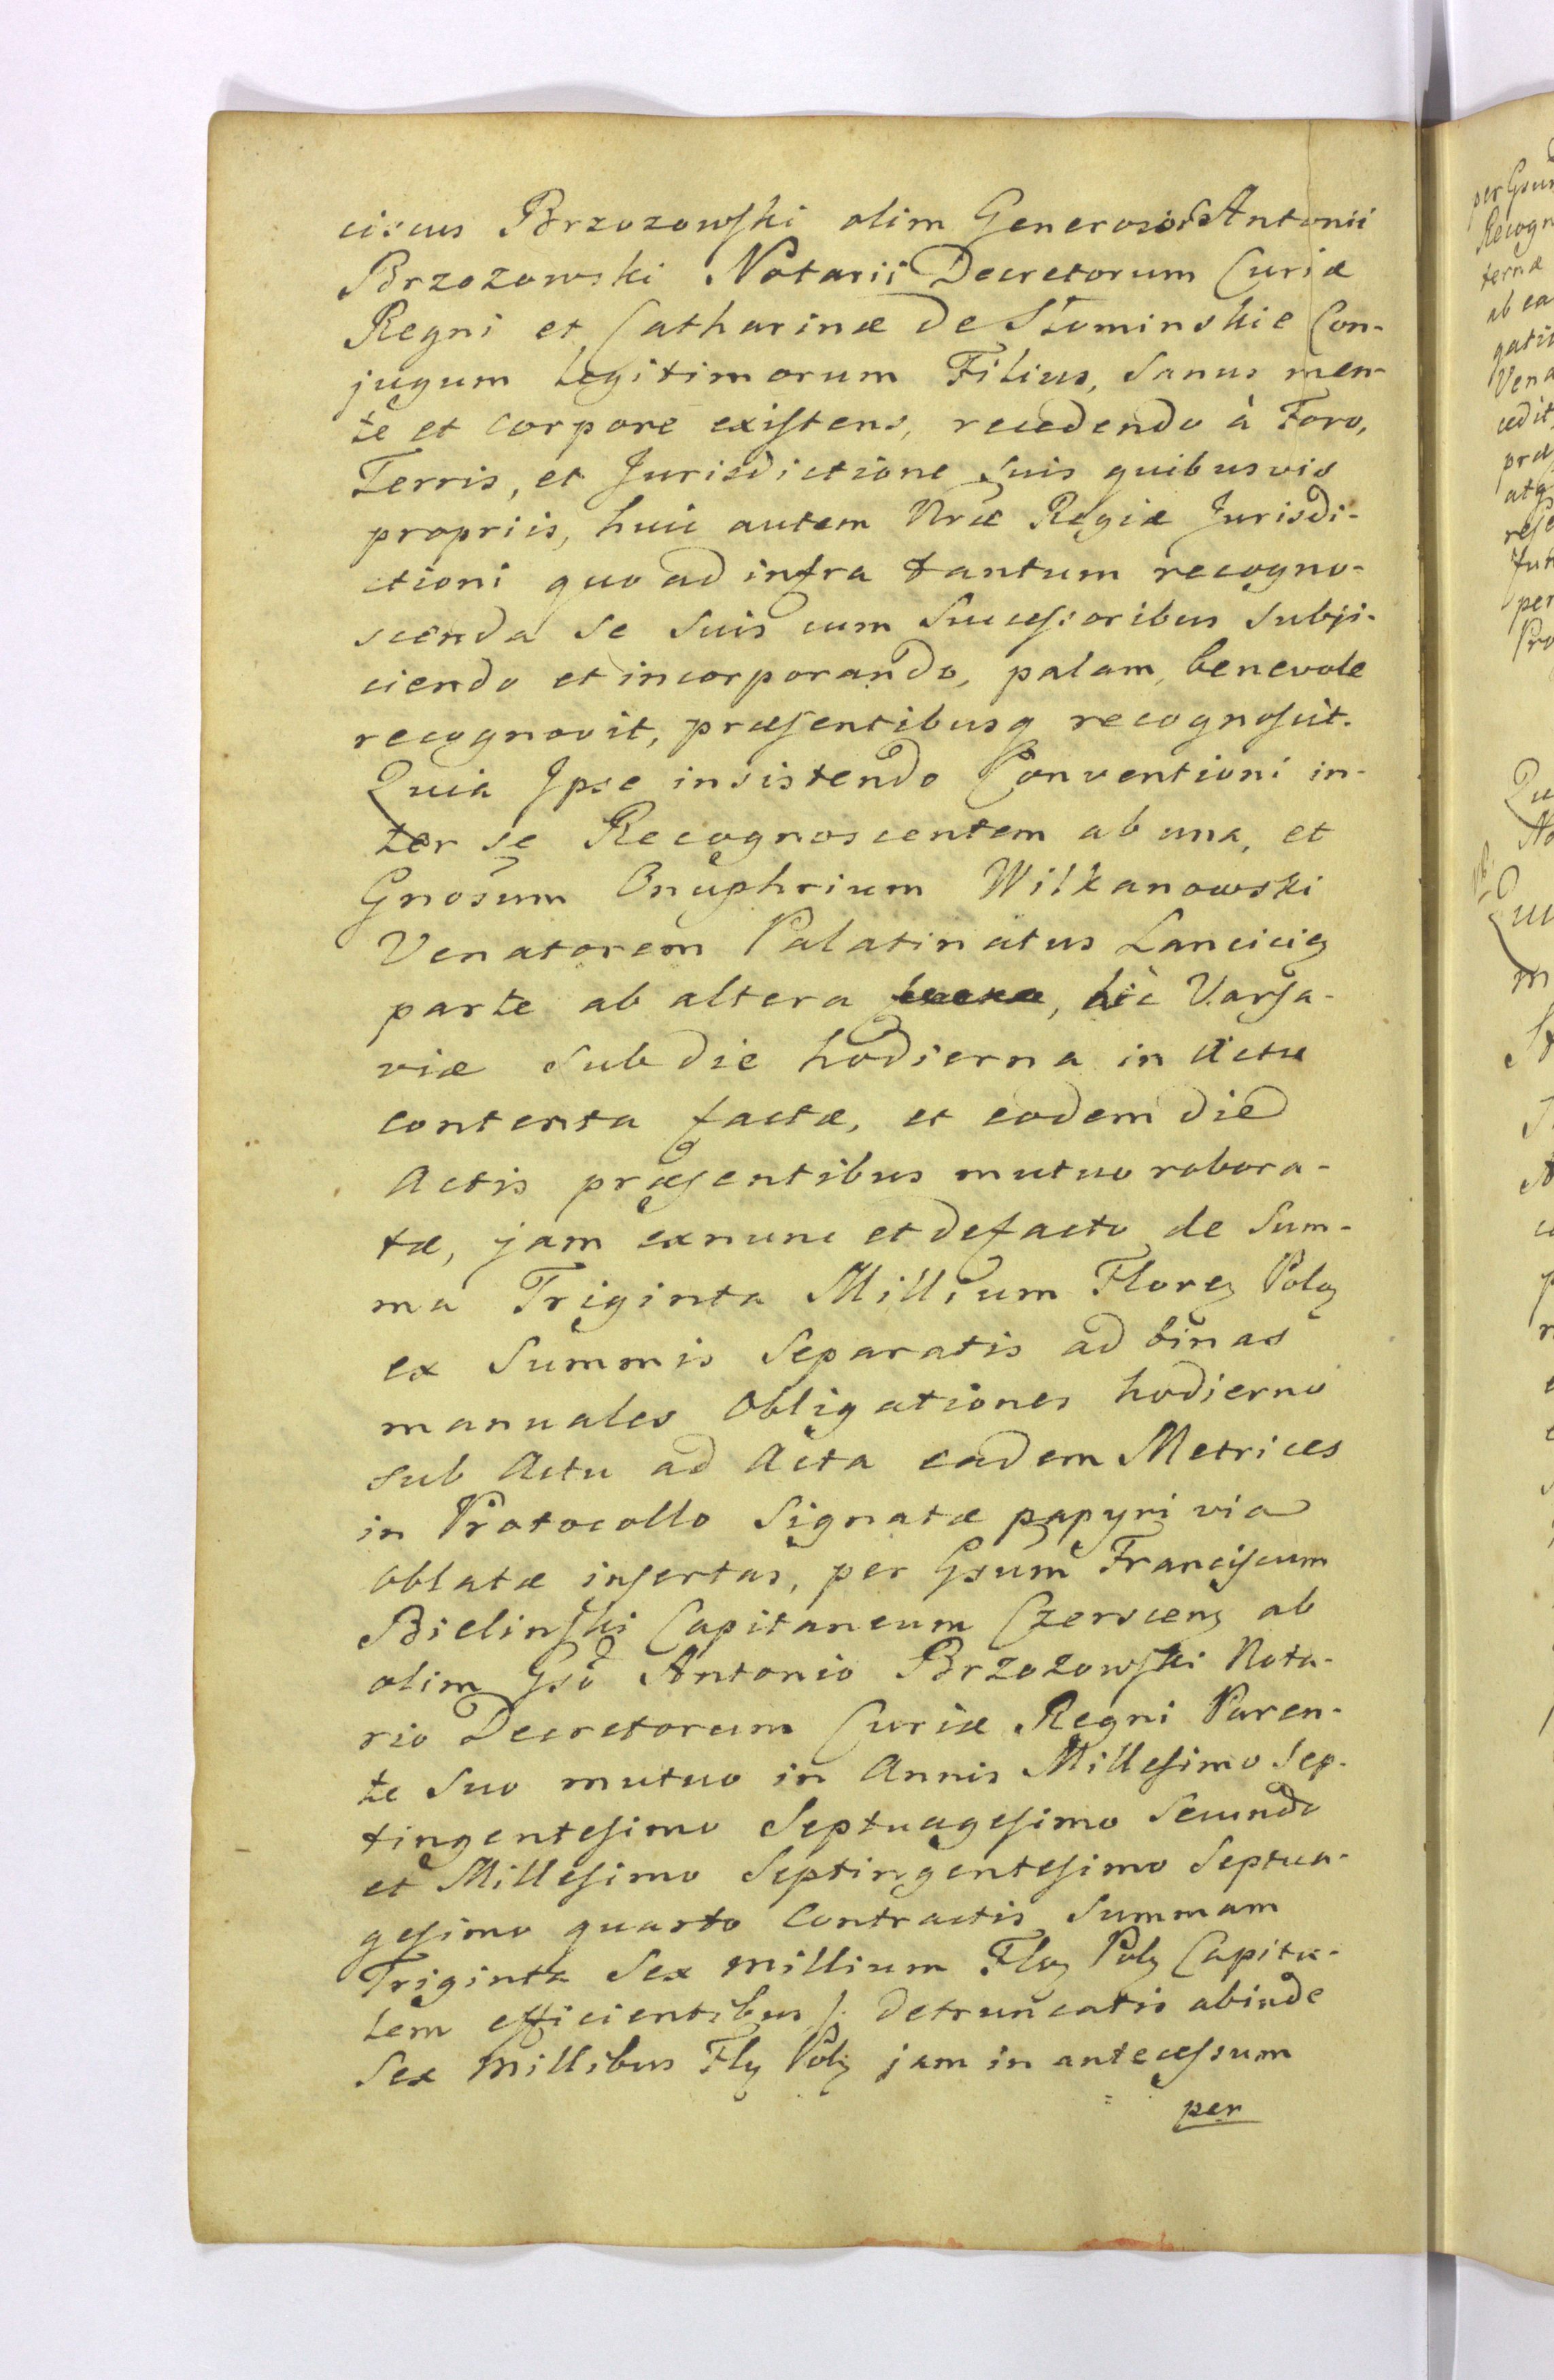 ciscus Brzozowski olim Generosor Antonii
Brzozowski Notarii Decretorum Curiæ
Regni et Catharinæ de Słominskie Con-
jugum Legitimorum Filius, Sanus men-
te et Corpore existens, recedendo à Foro,
Terris, et Jurisdictione Suis quibusvis
propriis, huic autem Nræ Regiæ Jurisdi-
ctioni quo ad infra tantum recogno-
scenda Se Suis cum Successoribus Subji-
ciendo et incorporando, palam, benevole
recognovit, præsentibusq recognoscit.
Quia Ipse insistendo Conventioni in-
ter se Recognoscentem ab una, et
Gnosum Onuphrium Wilkanowski
Venatorem Palatinatus Lancicię
parte ab altera, hic Varsa-
viæ Sub die hodierna in Actu
contenta factæ, et eodem die
Actis præsentibus mutuo robora-
tæ, jam exnunc et defacto de Sum-
ma Triginta Millium Floreg Polg
ex Summis Separatis ad binas
manuales Obligationes hodierno
sub Actu ad Acta eadem Metrices
in Protocollo Signatæ papyri via
Oblatæ insertas, per Gsum Franciscum
Bielinski Capitaneum Czersceng ab
olim Gso Antonio Brzozowski Nota-
rio Decretorum Curiæ Regni Paren-
te Suo mutuo in Annis Millesimo Sep-
tingentesimo Septuagesimo Secundo
et Millesimo Septingentesimo Septua-
gesimo quarto Contractis Summam
Triginta Sex Millium Flog Polg Capita-
lem efficientibus /. detruncatis abinde
Sex Millibus Flg Polg jam in antecessum
per